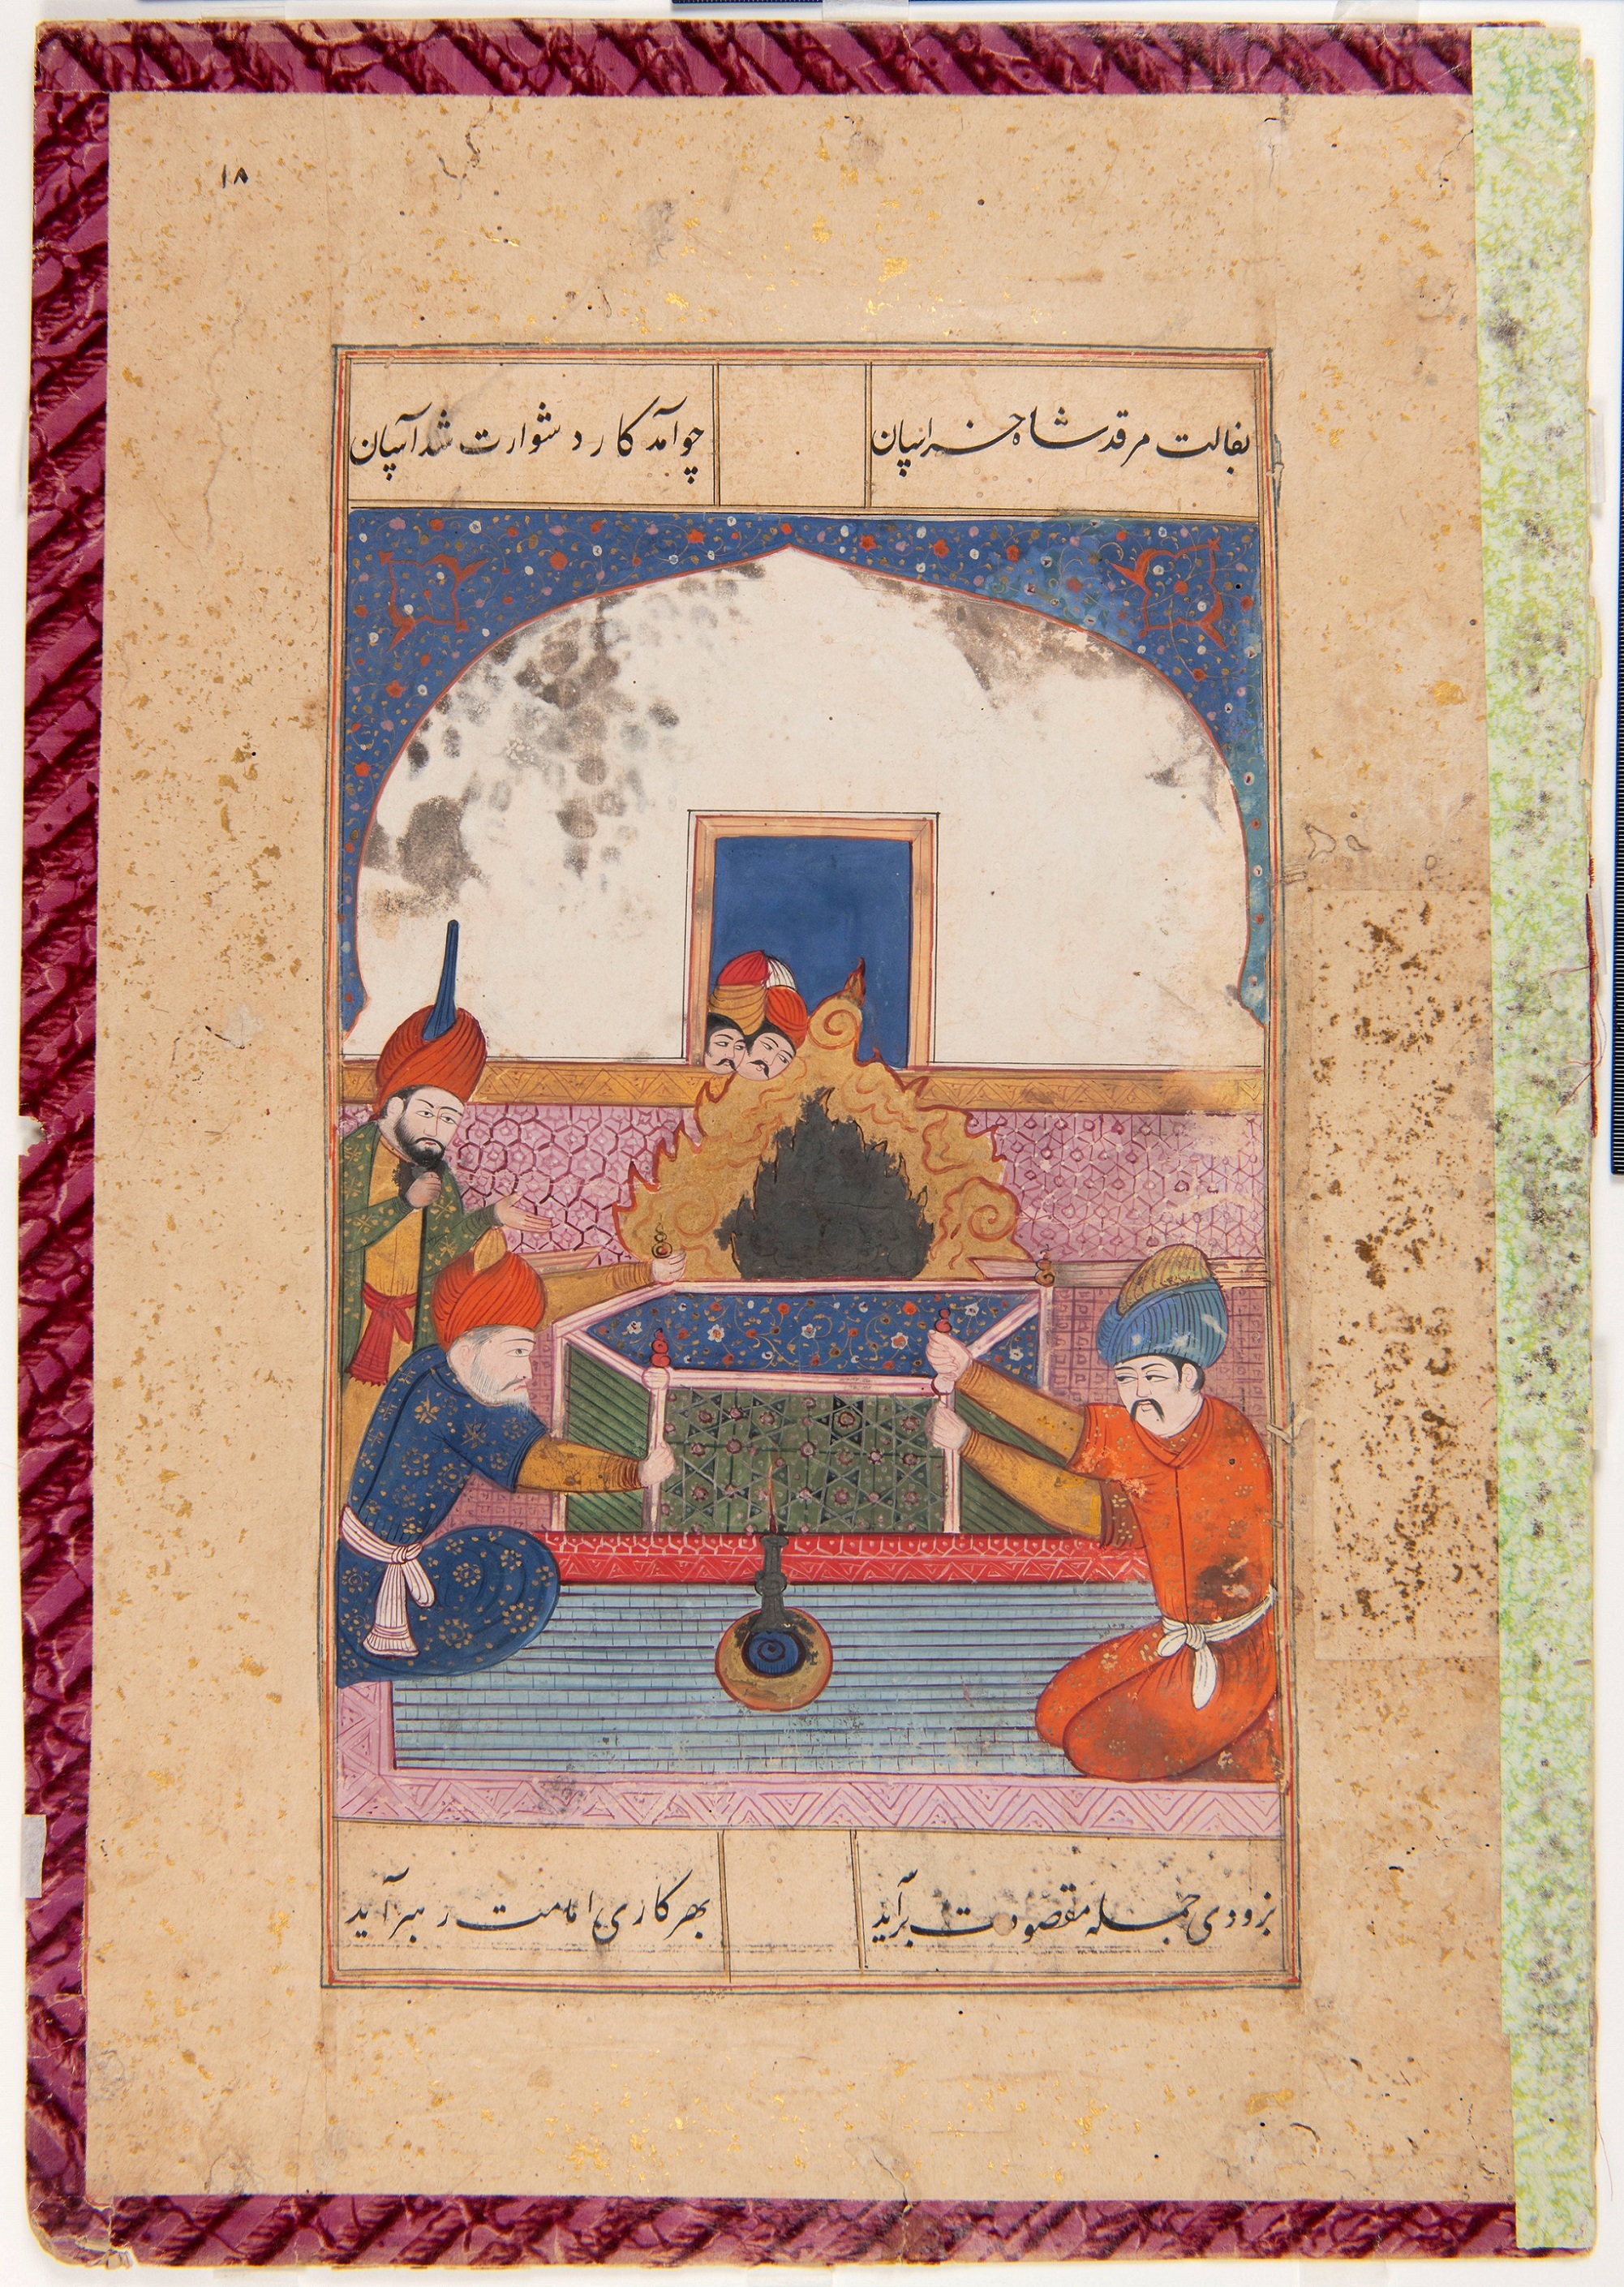 ۱۸
بفالت مرقد شاه خراسان
چو آمد کار دشوارت شد آسان
بزودی جمله مقصودت برآید
بهر کاری امامت رهبر آید